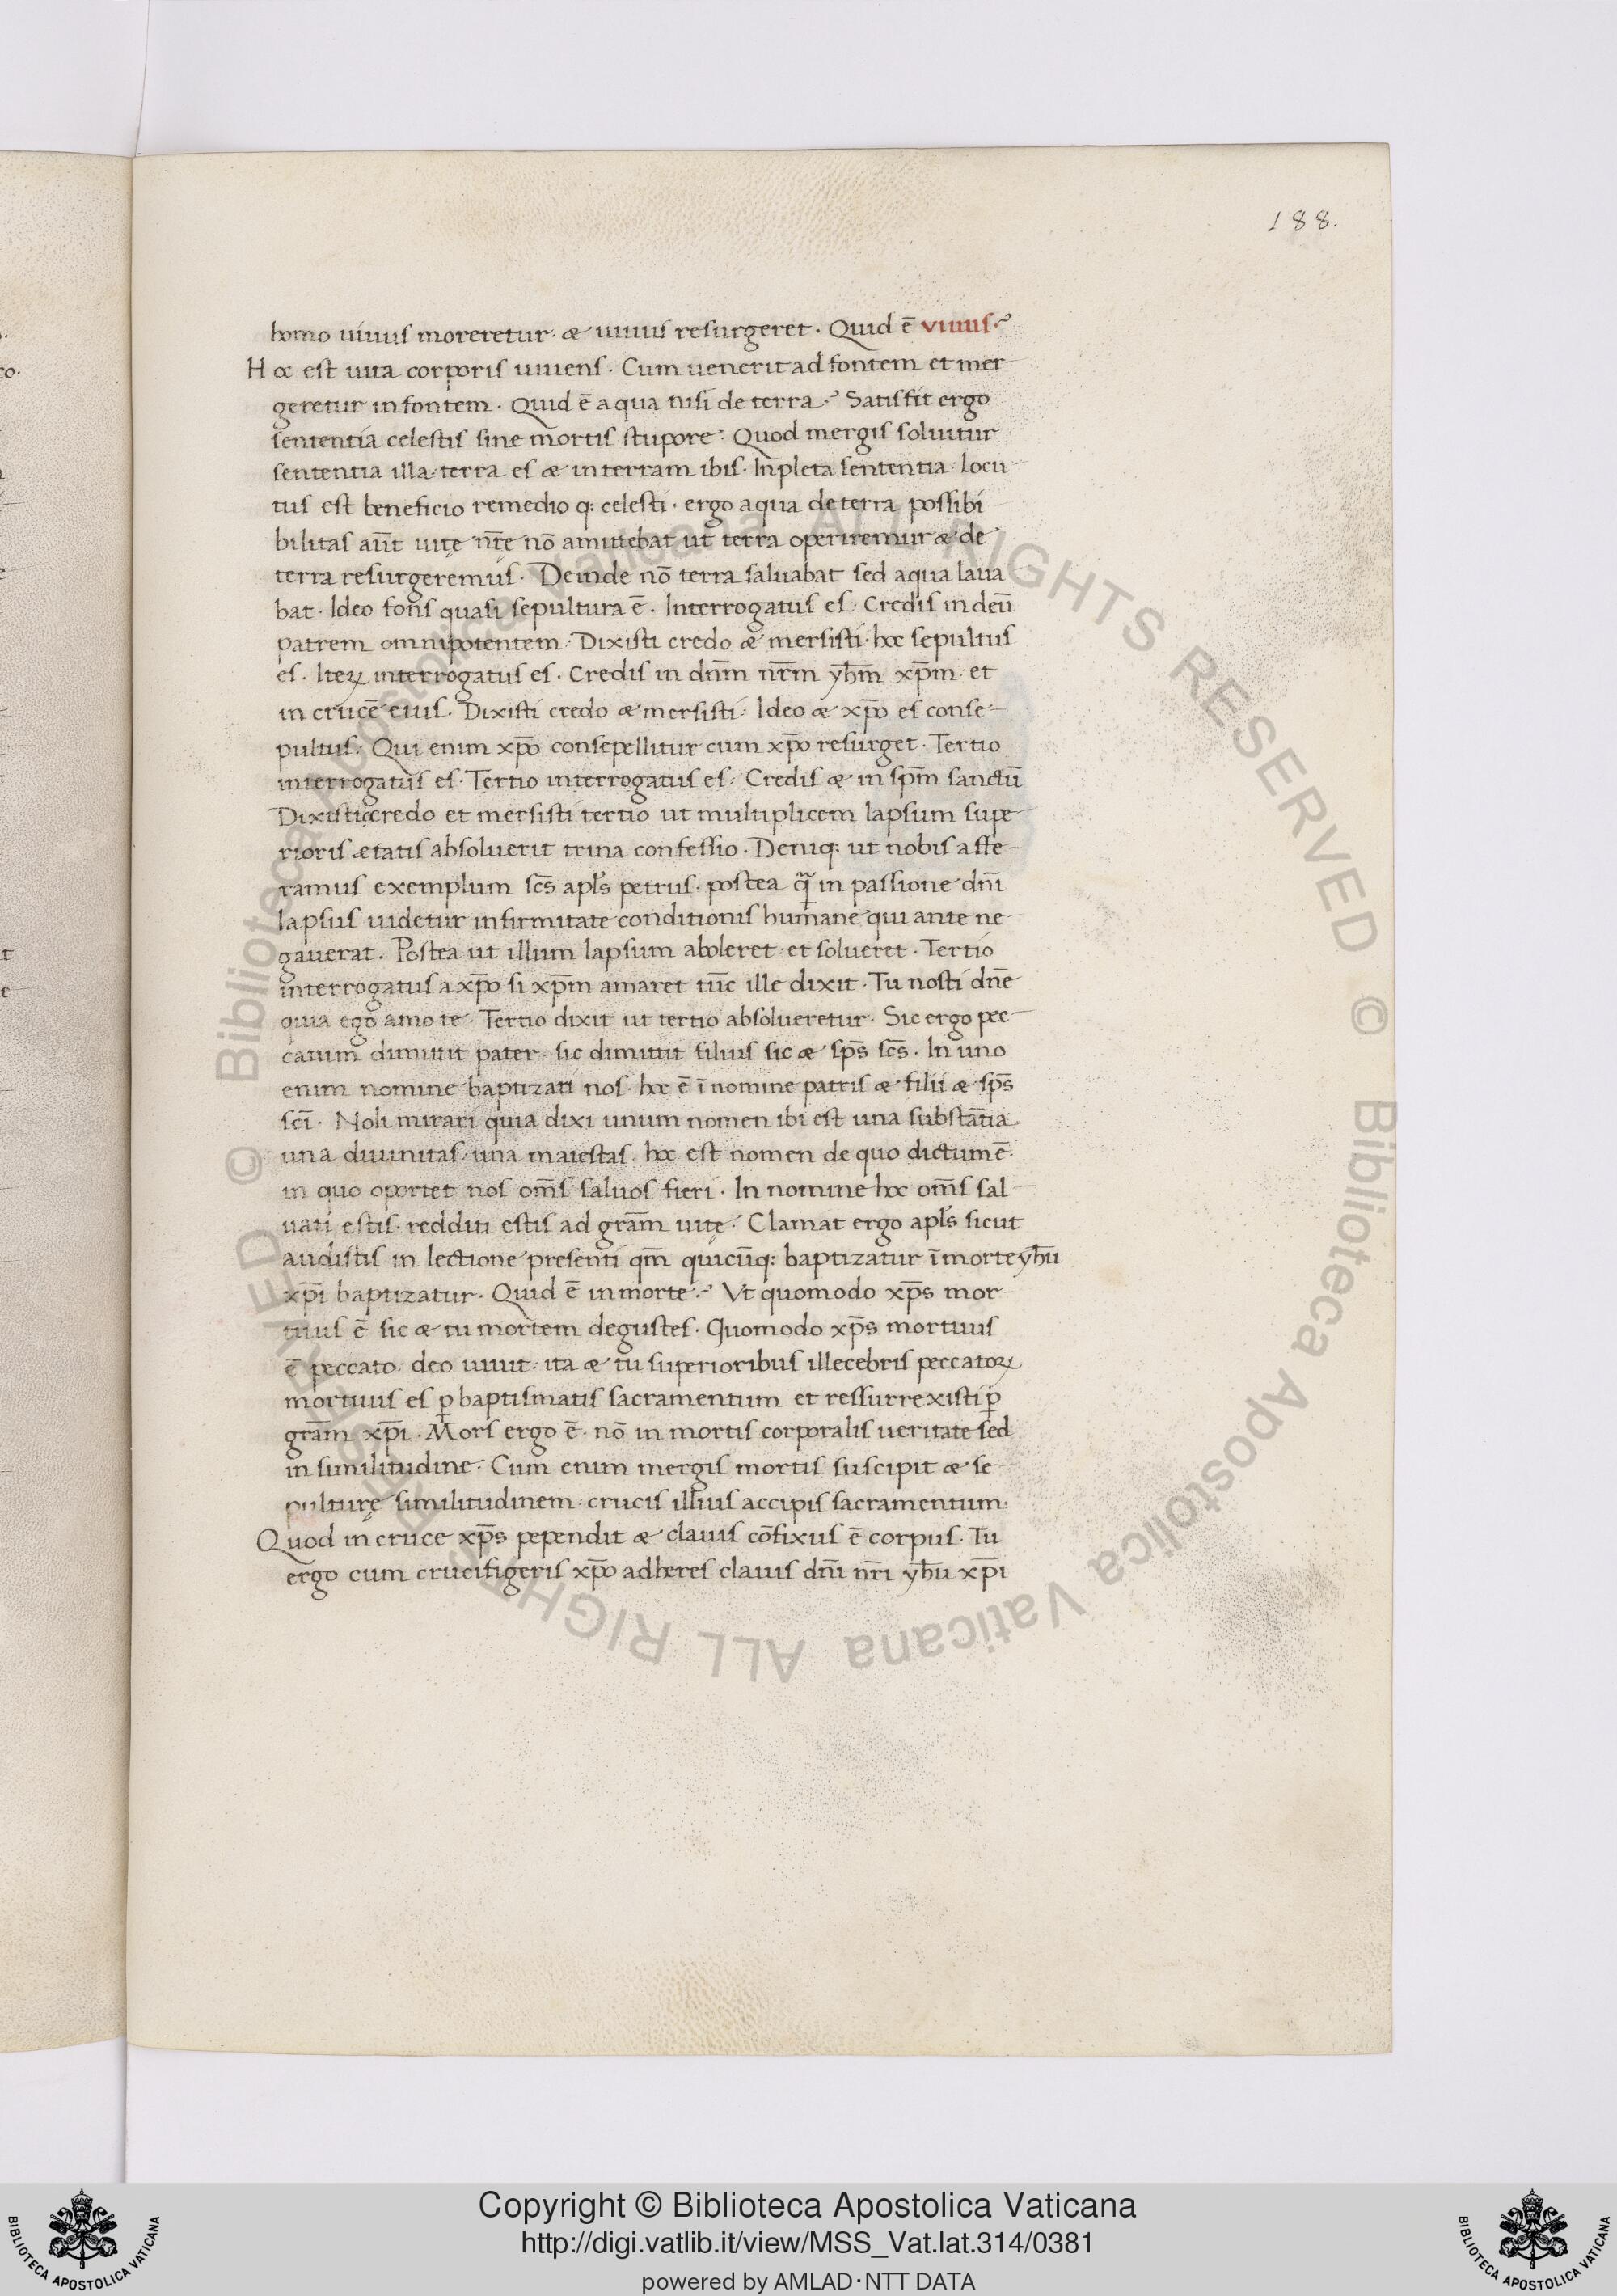 188.
homo uiuus moreretur. & uiuus resurgeret. Quid ē viuus.?
Hoc est uita corporis uiuens. Cum uenerit ad fontem et mer
geretur in fontem. Quid ē aqua nisi de terra.? Satisfit ergo
sententia celestis sine mortis stupore. Quod mergis soluitur
sententia illa. terra es & in terram ibis. Inpleta sententia. locu
tus est beneficio remedio q: celesti. ergo aqua de terra possibi
bilitas aūt uitę nr̄e nō amittebat ut terra operiremur & de
terra resurgeremus. Deinde nō terra saluabat sed aqua laua
bat. Ideo fons quasi sepultura ē. Interrogatus es. Credis in deū
patrem omnipotentem. Dixisti credo & mersisti. hoc sepultus
es. Iteꝝ interrogatus es. Credis in dnm̄ nr̄m yhm̄ xp̄m. et
in crucē eius. Dixisti credo & mersisti. Ideo & xp̄o es conse
pultus. Qui enim xp̄o consepellitur cum xp̄o resurget. Tertio
interrogatus es. Tertio interrogatus es. Credis & in spm̄ sanctū
Dixisti credo et mersisti tertio ut multiplicem lapsum supe
rioris ætatis absoluerit trina confessio. Deniq: ut nobis affe
ramus exemplum scs̄ apls̄ petrus. postea q̄ꝫ in passione dn̄i
lapsus uidetur infirmitate conditionis humane qui ante ne
gauerat. Postea ut illum lapsum aboleret. et solueret. Tertio
interrogatus a xp̄o si xp̄m amaret tūc ille dixit. Tu nosti dn̄e
quia ego amo te. Tertio dixit ut tertio absolueretur. Sic ergo pec
catum dimittit pater. sic dimittit filius sic & sps̄ scs̄. In uno
enim nomine baptizati nos. hoc ē ī nomine patris & filii & sps̄
scī. Noli mirari quia dixi unum nomen ibi est una substātia
una diuinitas. una maiestas. hoc est nomen de quo dictum ē.
in quo oportet nos om̄s saluos fieri. In nomine hoc om̄s sal
uati estis. redditi estis ad grām uitę. Clamat ergo apls̄ sicut
audistis in lectione presenti qm̄ quicūq: baptizatur ī morte yhū
xp̄i baptizatur. Quid ē in morte.? Vt quomodo xp̄s mor
tuus ē sic & tu mortem degustes. Quomodo xp̄s mortuus
ē peccato. deo uiuit. ita & tu superioribus illecebris peccatoꝝ
mortuus es ꝑ baptismatis sacramentum et ressurrexisti ꝑ
grām xp̄i. Mors ergo ē. nō in mortis corporalis ueritate sed
in similitudine. Cum enim mergis mortis suscipit & se
pulturę similitudinem. crucis illius accipis sacramentum.
Quod in cruce xp̄s pependit & clauis cōfixus ē corpus. Tu
ergo cum crucifigeris xp̄o adheres clauis dn̄i nr̄i yhū xp̄i
Copyright © Biblioteca Apostolica Vaticana
http://digi.vatlib.it/view/MSS_Vat.lat.314/0381
powered by AMLAD·NTT DATA